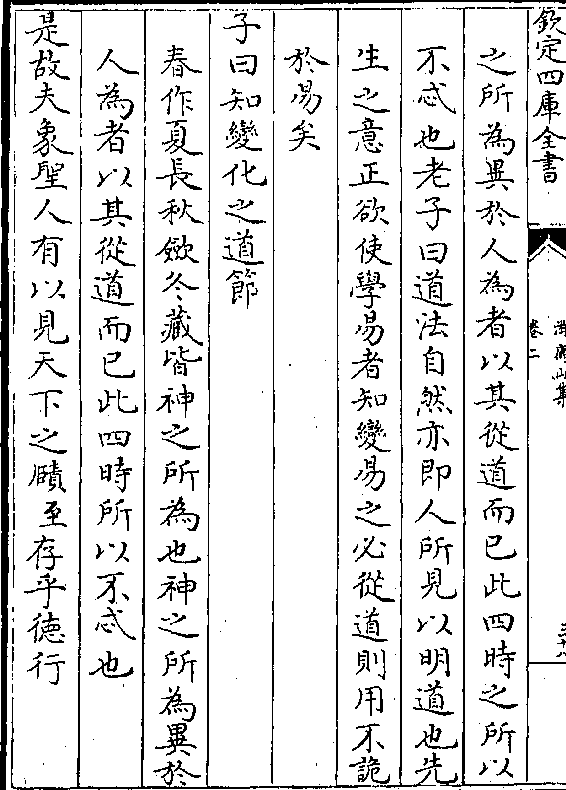 欽定四庫全書
卷二
之所為異於人為者以其從道而已此四時之所以
不忒也老子曰道法自然亦即人所見以明道也先
生之意正欲使學易者知變易之必從道則用不詭
於易矣
子曰知變化之道節
春作夏長秋斂冬藏皆神之所為也神之所為異於
人為者以其從道而已此四時所以不忒也
是故夫象聖人有以見天下之賾至存乎德行